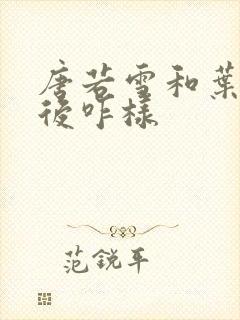 唐若雪和葉
後咋樣
范銳平